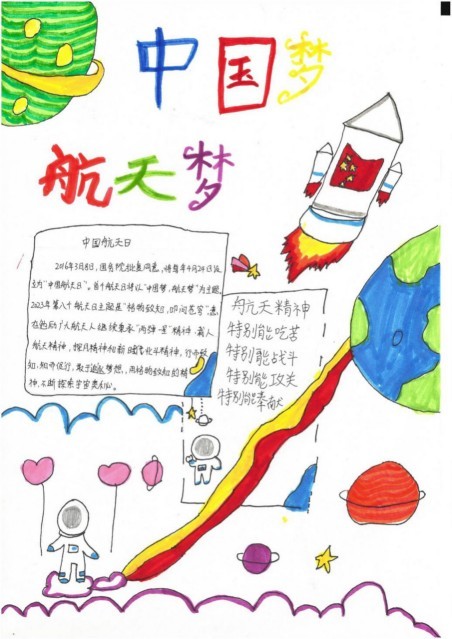 中国梦
航天梦
中国航天日
2016年3月8日,国务院批复同意,将每年4月24日设
立为"中国航天日"。首个航天日将以"中国梦,航天梦"为主题,
2023年第八个航天日主题是"格物致知,叩问苍穹"意
在勉励广大航天人继续秉承"两弹一星"精神、载人
航天精神、探月精神和新时代奋斗精神,行
知、知行促行、敢于追逐梦想,用格物致知的精
神,不断探索宇宙奥秘。
航天精神
特别能吃苦
特别能战斗
特别能攻关
特别能奉献